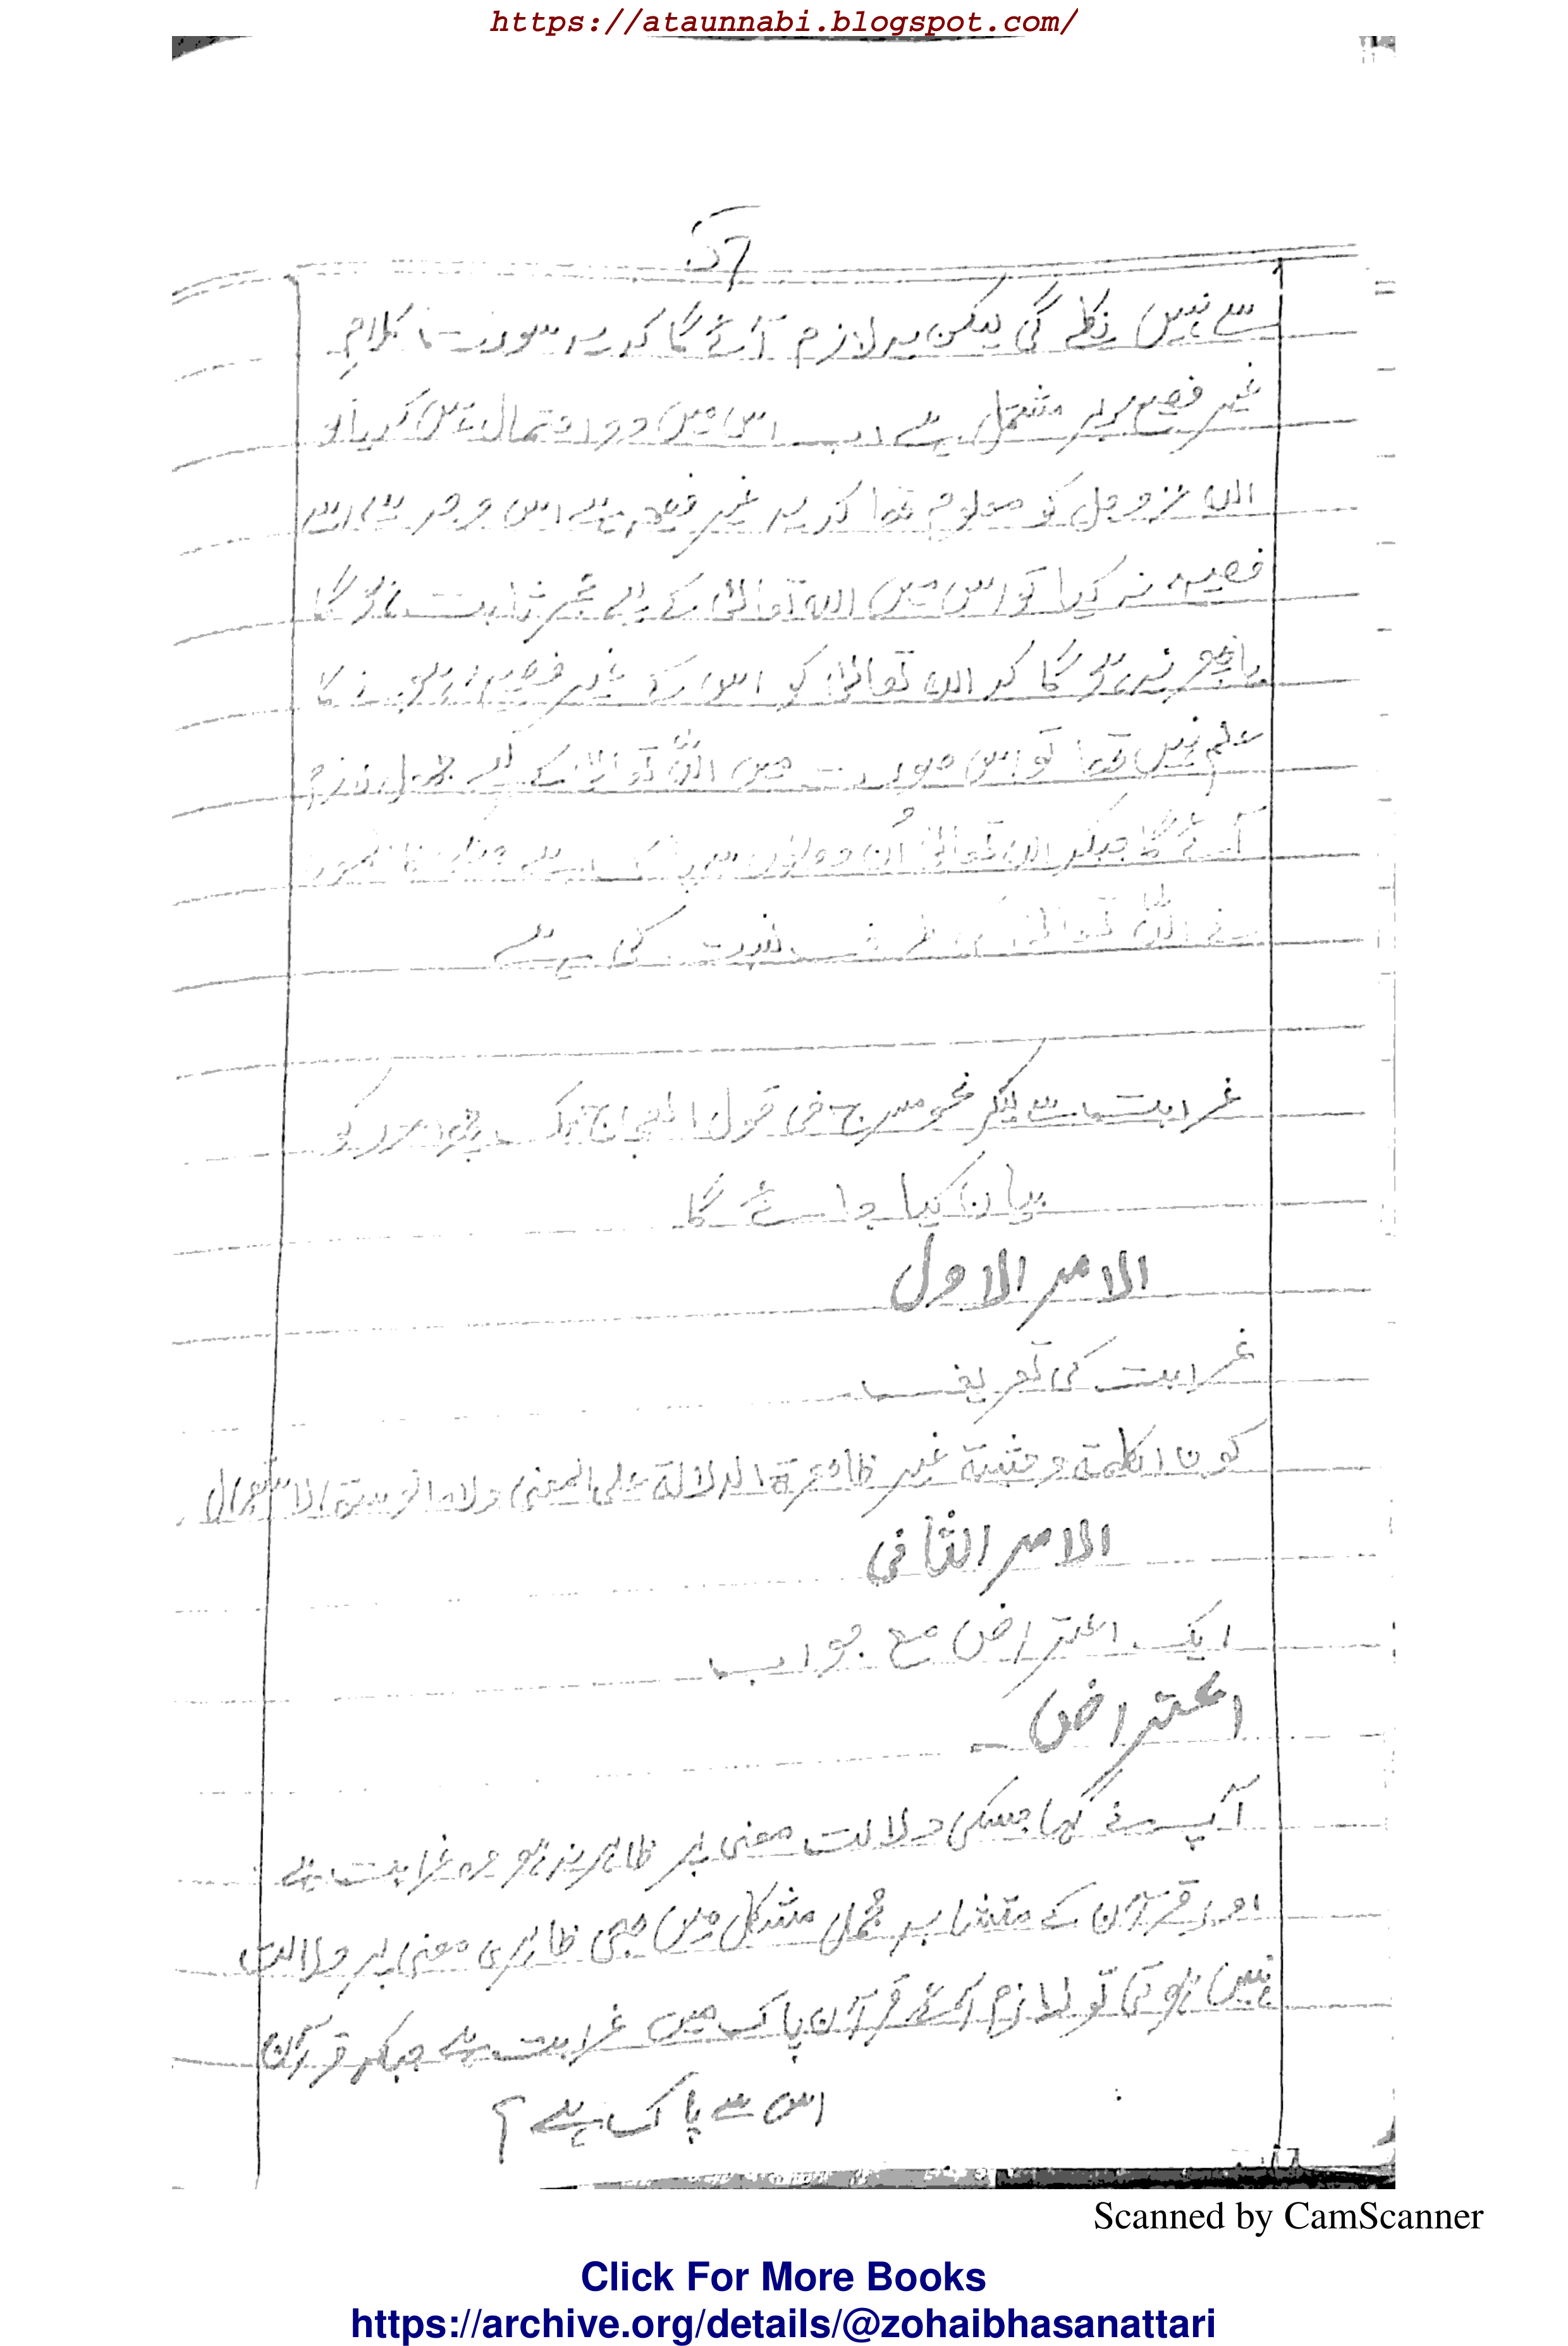 https://ataunnabi.blogspot.com/
سے نہیں نکلے گی لیکن یہ لازم آئے گا کہ یہ سورت کلامِ
غیر فصیح پر مشتمل ہے اب اس میں دو احتمال ہیں کہ یا تو
اللہ عزوجل کو معلوم تھا کہ یہ غیر فصیح ہے اس وجہ سے اسے
فصیح نہ کیا تو اس میں اللہ تعالیٰ کے لیے عجز ثابت ہوگا
یا پھر یہ ہوگا کہ اللہ تعالیٰ کو اس کے غیر فصیح ہونے کا
علم نہیں تھا تو اس صورت میں اللہ تعالیٰ کے لیے جہل لازم
آئے گا جبکہ اللہ تعالیٰ ان دونوں سے پاک ہے
نے اللہ تعالیٰ کی طرف نسبت کی ہے
غرابت سے لیکر نحو مسرج فی قول العجاج تک چند امور کو
بیان کیا جائے گا
الامر الاول
غرابت کی تعریف
کون الکلمة وحشیة غیر ظاهرة الدلالة علی المعنی ولا مانوسة الاستعمال
الامر الثانی
ایک اعتراض مع جواب
اعتراض ۔
آپ نے کہا جسکی دلالت معنی پر ظاہر نہ ہو وہ غرابت ہے
اور قرآن کے متشابہ مجمل مشکل میں بھی ظاہری معنی پر دلالت
نہیں ہوتی تو لازم آئے قرآن پاک میں غرابت ہے جبکہ قرآن
اس سے پاک ہے ؟
Scanned by CamScanner
Click For More Books
https://archive.org/details/@zohaibhasanattari